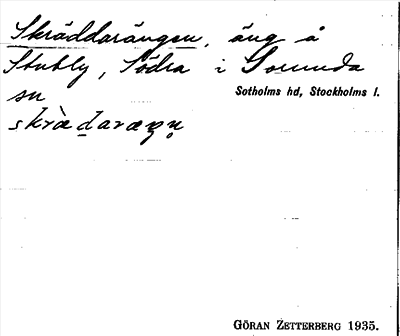 Skräddarängen, äng å
Stubby, Södra i Sorunda
sn
Sotholms hd, Stockholms l.
skrædaræŋn̥
GÖRAN ZETTERBERG 1935.